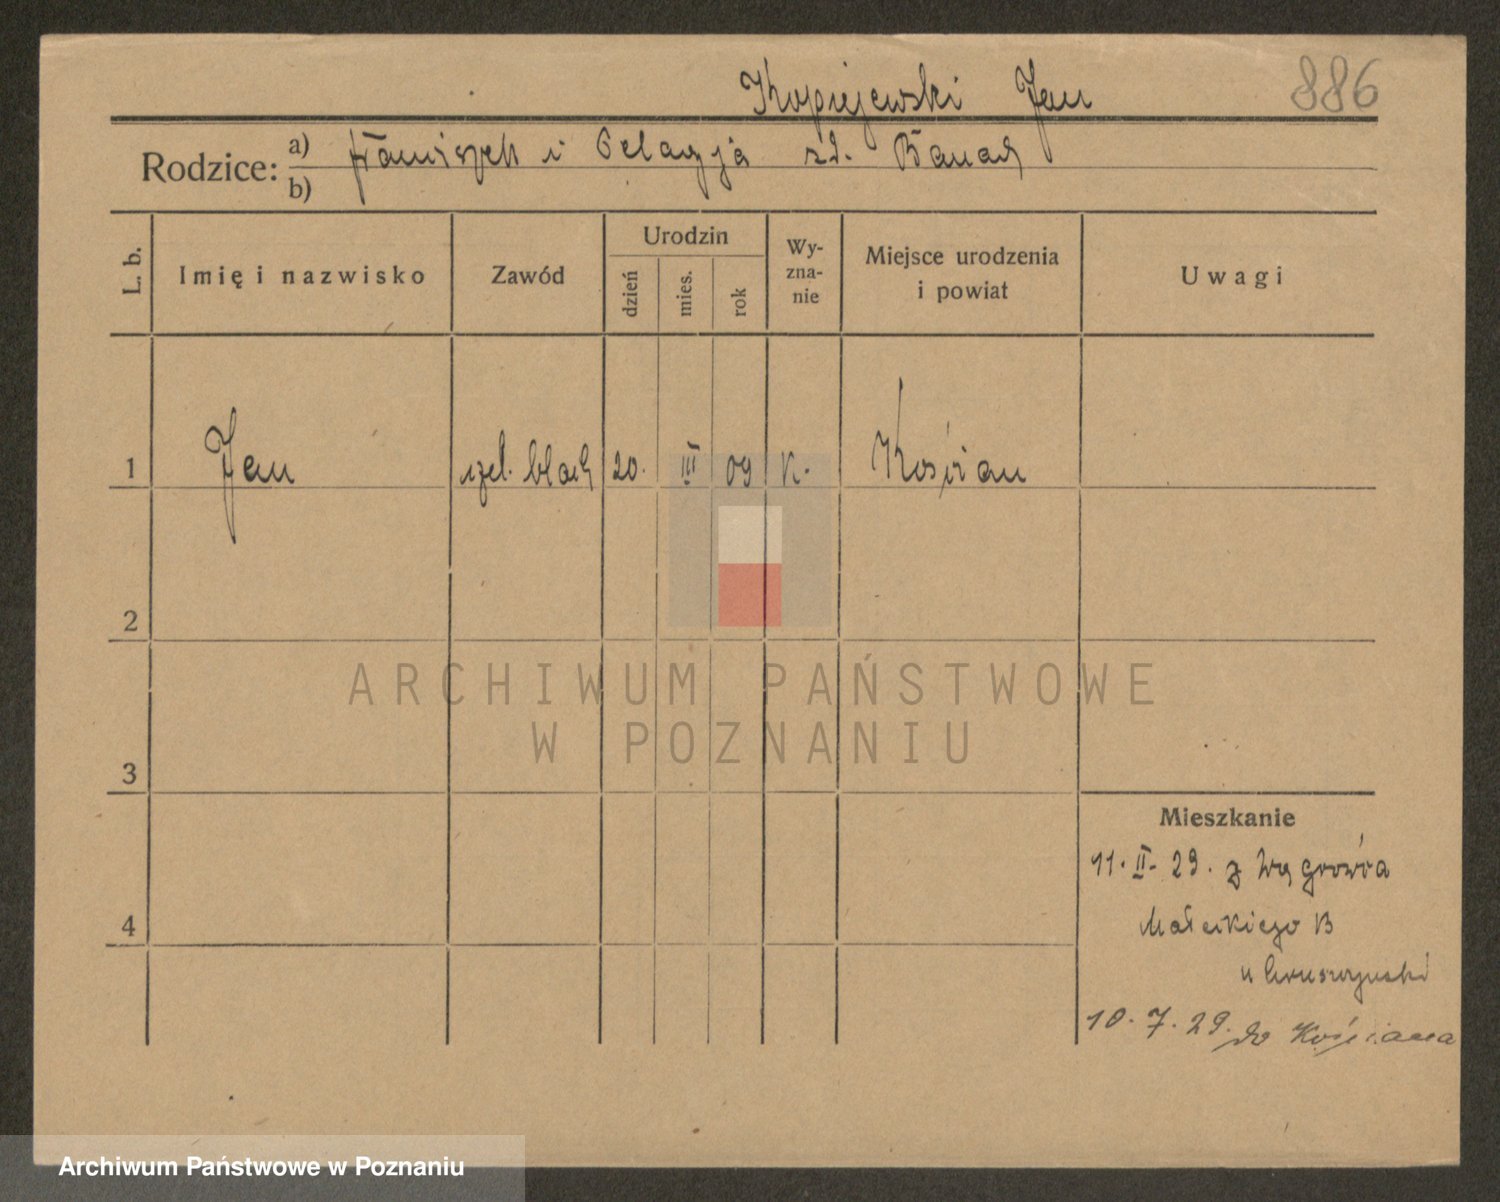 Kopiejewski Jan 886
Rodzice: a) Franciszek i Pelagja zd. Banach
b)
L. b. Imię i nazwisko Zawód Urodzin dzień mies. rok Wyznanie Miejsce urodzenia i powiat Uwagi
1 Jan czel. blach 20. III 09 K. Kościan
2
ARCHIWUM PAŃSTWOWE
W POZNANIU
3
Mieszkanie
11. II. 29. z Węgrowca
4 Małeckiego 13
u
10. 7. 29. do Kościana
Archiwum Państwowe w Poznaniu